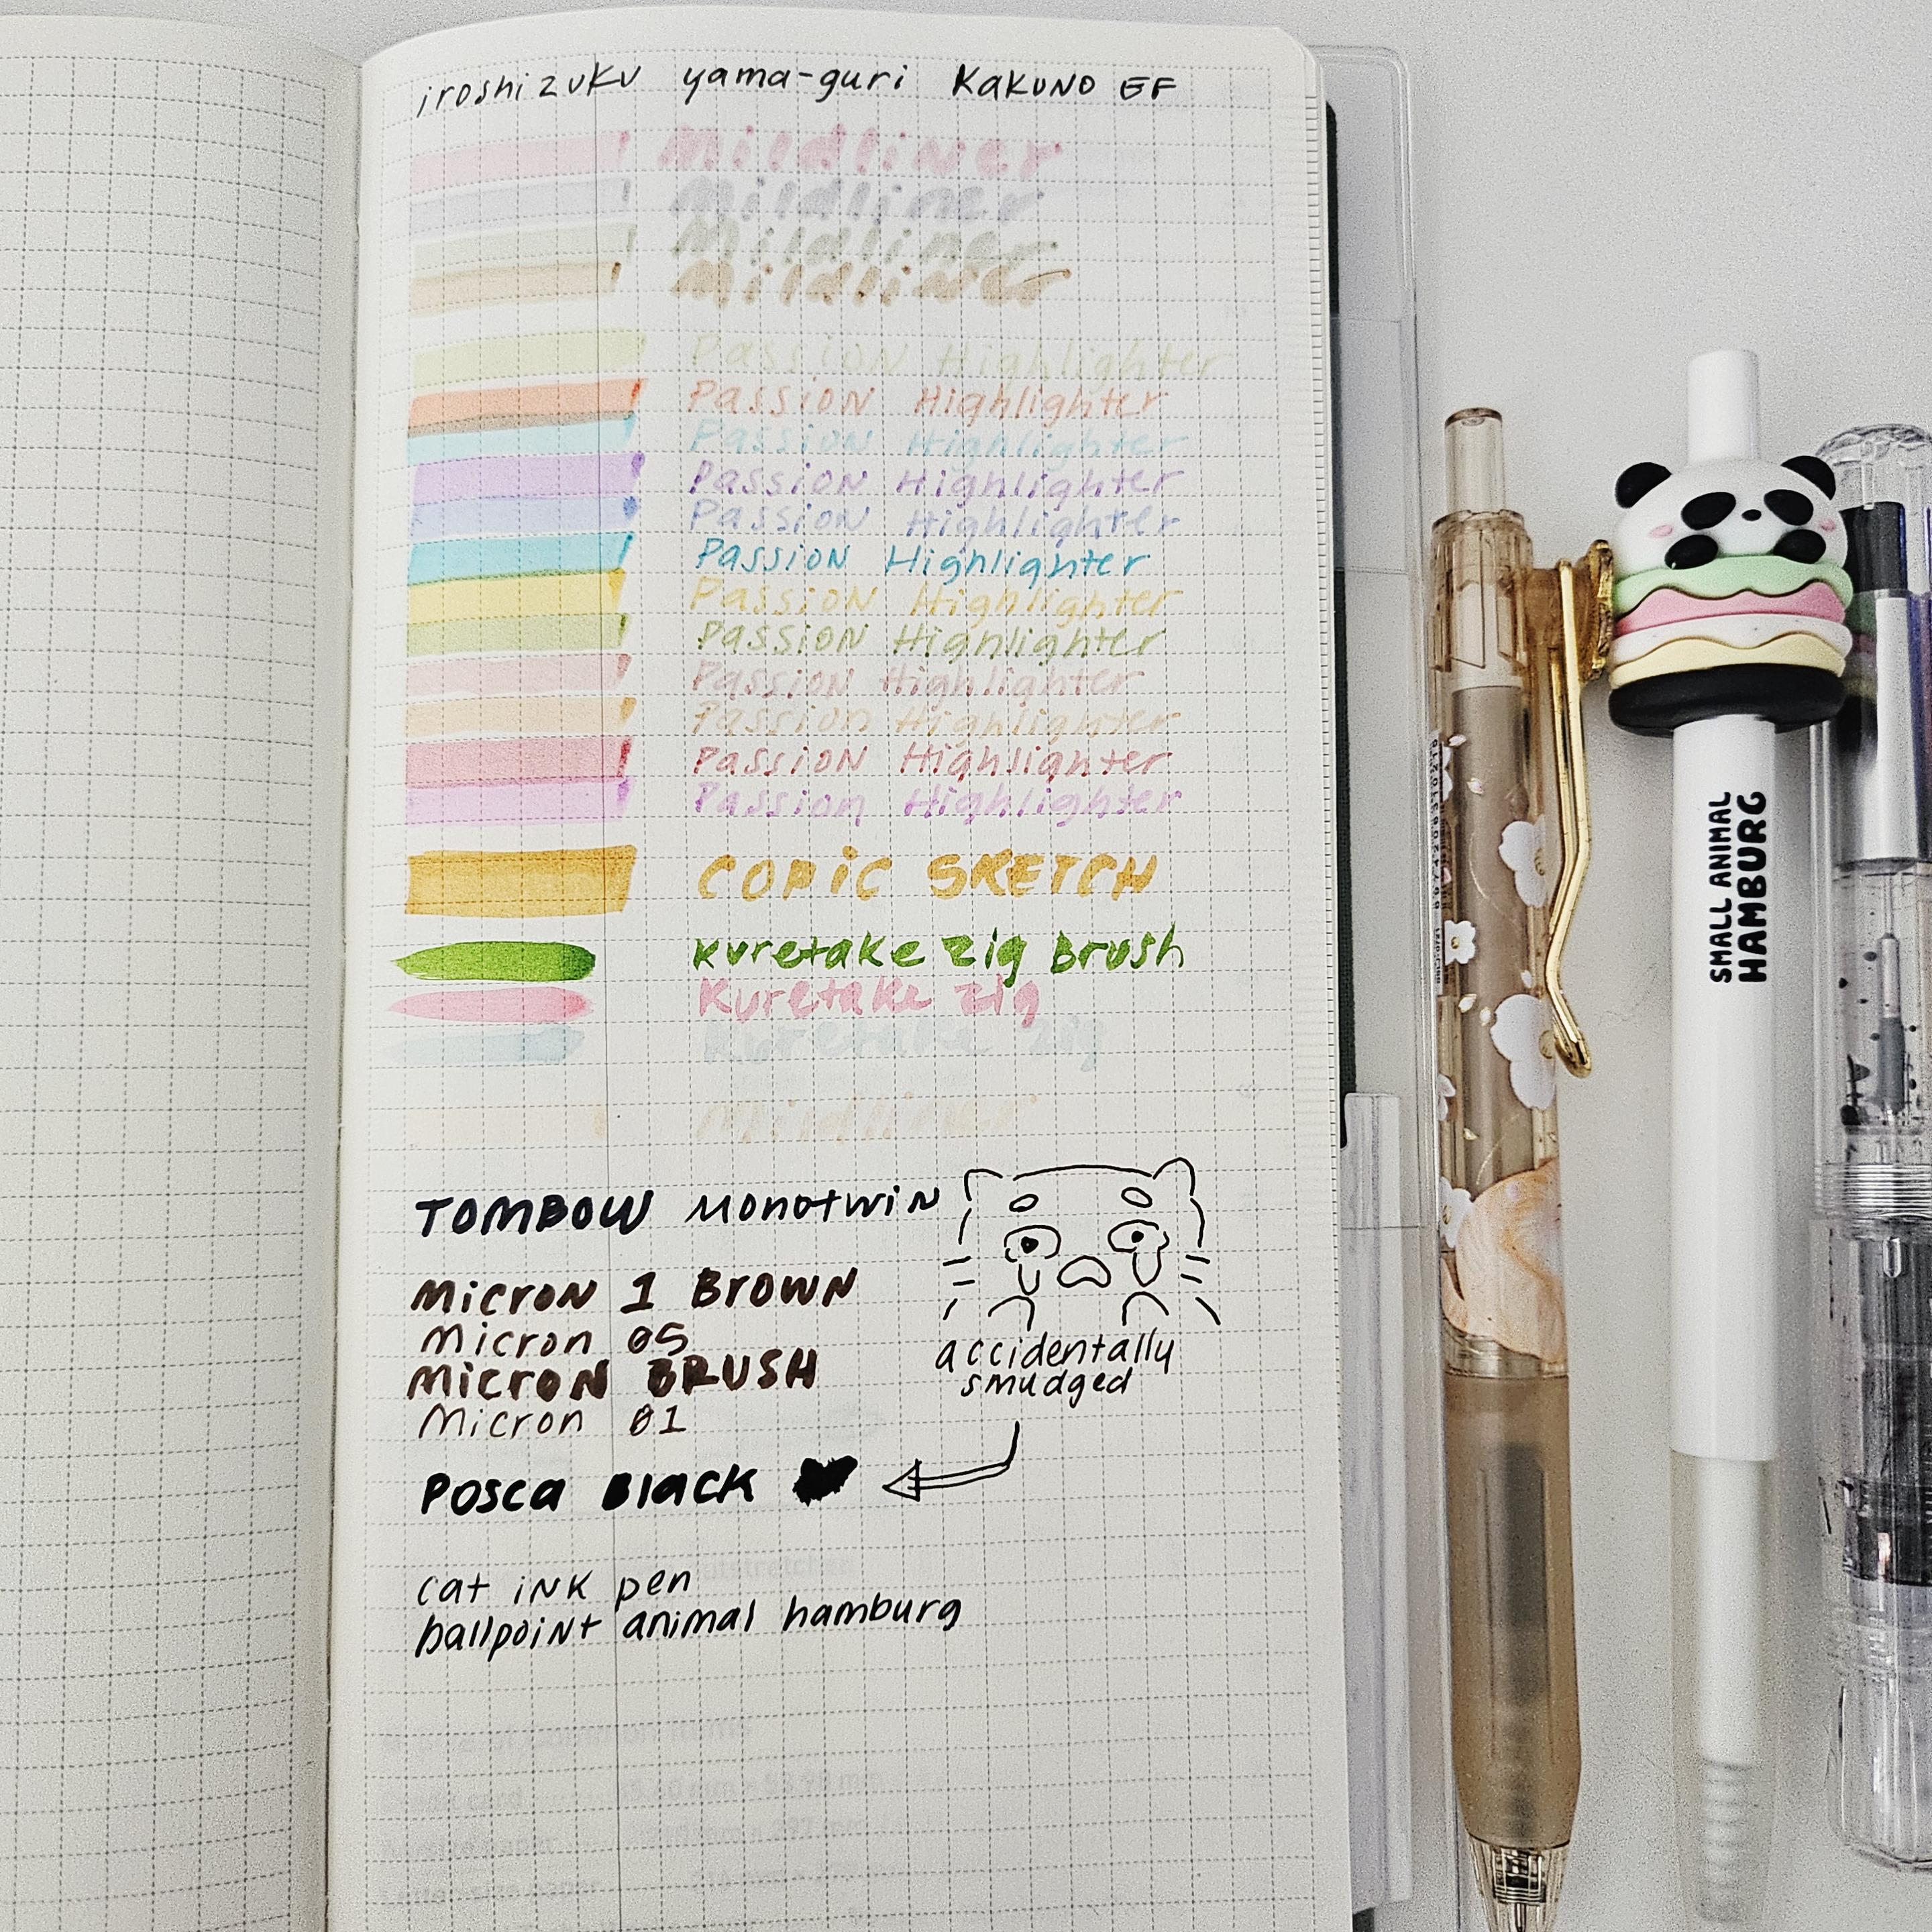 iroshizuku yama-guri Kakuno EF
Mildliner
Mildliner
Mildliner
Mildliner
Passion Highlighter
Passion Highlighter
Passion Highlighter
Passion Highlighter
Passion Highlighter
Passion Highlighter
Passion Highlighter
Passion Highlighter
Passion Highlighter
Passion Highlighter
Passion Highlighter
Passion Highlighter
COPiC SKETCH
Kuretake Zig Brush
Kuretake Zig
Kuretake Zig
Mildliner
TOMBOW Monotwin
Micron 1 Brown
Micron 05
Micron BRUSH
Micron 01
accidentally
smudged
Posca Black
cat ink pen
ballpoint animal hamburg
SMALL ANIMAL
HAMBURG